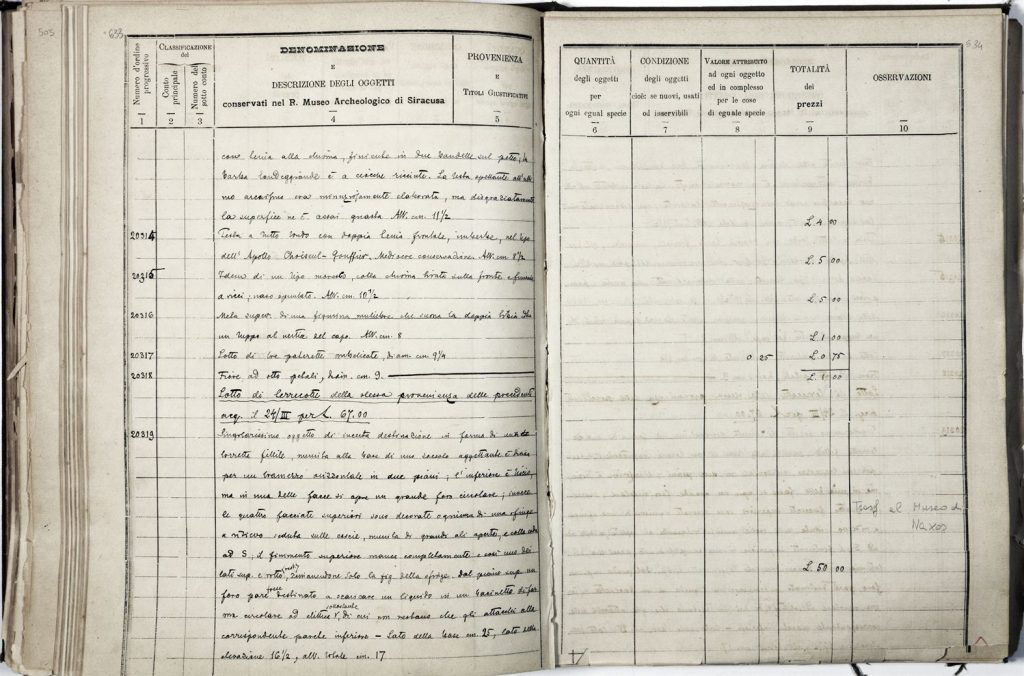 505
633
Numero d'ordine progressivo
CLASSIFICAZIONE del
Conto principale
Numero del sotto conto
DENOMINAZIONE
E
DESCRIZIONE DEGLI OGGETTI
conservati nel R. Museo Archeologico di Siracusa
PROVENIENZA
E
TITOLI GIUSTIFICATIVI
1 2 3 4 5
con tenia alla chioma, finiente in due bandelle sul petto; la
barba tondeggiante è a ciocche riccinte. La testa
ma disgraziatamente
la superficie ne è assai guasta Alt. cm. 11 1/2
20314 Testa a tutto tondo con doppia tenia frontale, imberbe, nel tipo
dell' Apollo Choiseul-Gouffier. Mediocre conservazione. Alt. cm 8 1/2
20315 Idem di un tipo colla chioma sulla fronte e
a ricci; naso spuntato. Alt. cm. 10 1/2
20316 Metà super. di una figurina muliebre che la doppia
un al vertice del capo. Alt. cm. 8
20317 Lotto di tre paterette umbelicate, diam. cm. 9 1/4
20318 Fiore ad otto petali, diam. cm 9.
Lotto di terrecotte della stessa provenienza delle precedenti
acq. il 24/III per L. 67.00
20319 Singolarissimo oggetto di incerta destinazione in forma di una
torretta fittile, munita alla base di uno zoccolo aggettante è
per un tramezzo orizzontale in due piani; l'inferiore è
ma in una delle facce si apre un grande foro circolare; invece
le quattro facciate superiori sono decorate ognuna di una sfinge
a rilievo seduta sulle coscie, munita di grandi ali aperte, e colla coda
ad S; il finimento superiore manca completamente e così uno dei
lati sup. è rotto, rimanendone solo la fig. della sfinge. Dal piano sup. un
foro pare forse destinato a scaricare un liquido in un bacinetto di for
ma circolare od elittica sottostante, di cui non restano che gli attacchi alla
corrispondente parete inferiore – Lato della base cm. 25, lato della
elevazione 16 1/2, alt. totale cm. 17
634
QUANTITÀ
degli oggetti
per
ogni egual specie
CONDIZIONE
degli oggetti
cioè: se nuovi, usati
od inservibili
VALORE ATTRIBUITO
ad ogni oggetto
ed in complesso
per le cose
di eguale specie
TOTALITÀ
dei
prezzi
OSSERVAZIONI
6 7 8 9 10
L. 4 00
L. 5 00
L. 5 00
L. 1 00
0 25 L. 0 75
L. 1 00
Trasf. al Museo di
Naxos
L. 50 00